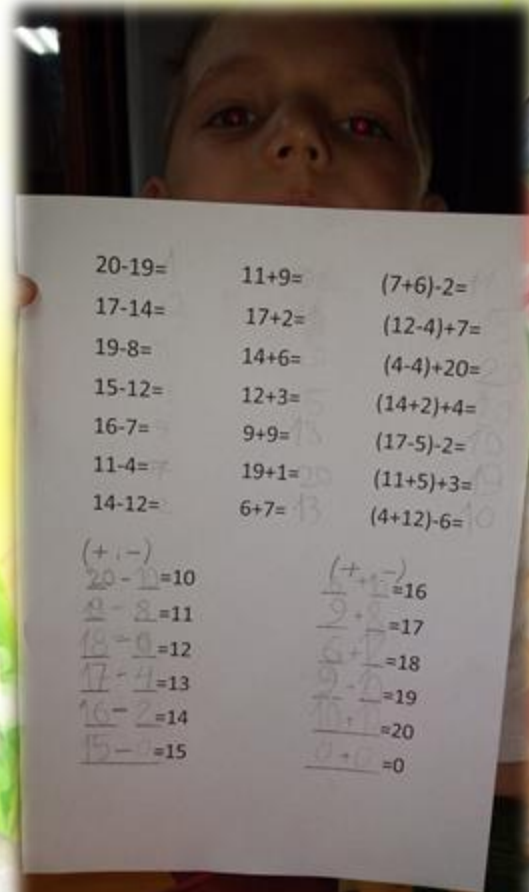 20-19=
17-14=
19-8=
15-12=
16-7=9
11-4=7
14-12=
11+9=
17+2=
14+6=
12+3=
9+9=18
19+1=20
6+7=13
(7+6)-2=11
(12-4)+7=
(4-4)+20=
(14+2)+4=
(17-5)-2=10
(11+5)+3=19
(4+12)-6=10
(+,-)
20-10=10
19-8=11
18-6=12
17-4=13
16-2=14
15-0=15
(+,-)
=16
9+8=17
6+12=18
=19
10+10=20
0+0=0